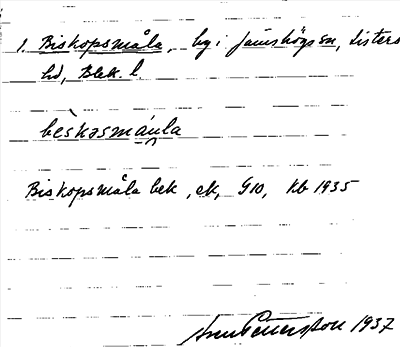 1. Biskopsmåla, by i Jämshögs sn, Listers
hd, Blek. l.
bèskəsmåula
Biskopsmåla bek, ek, G10, Kb 1935
Pettersson 1937